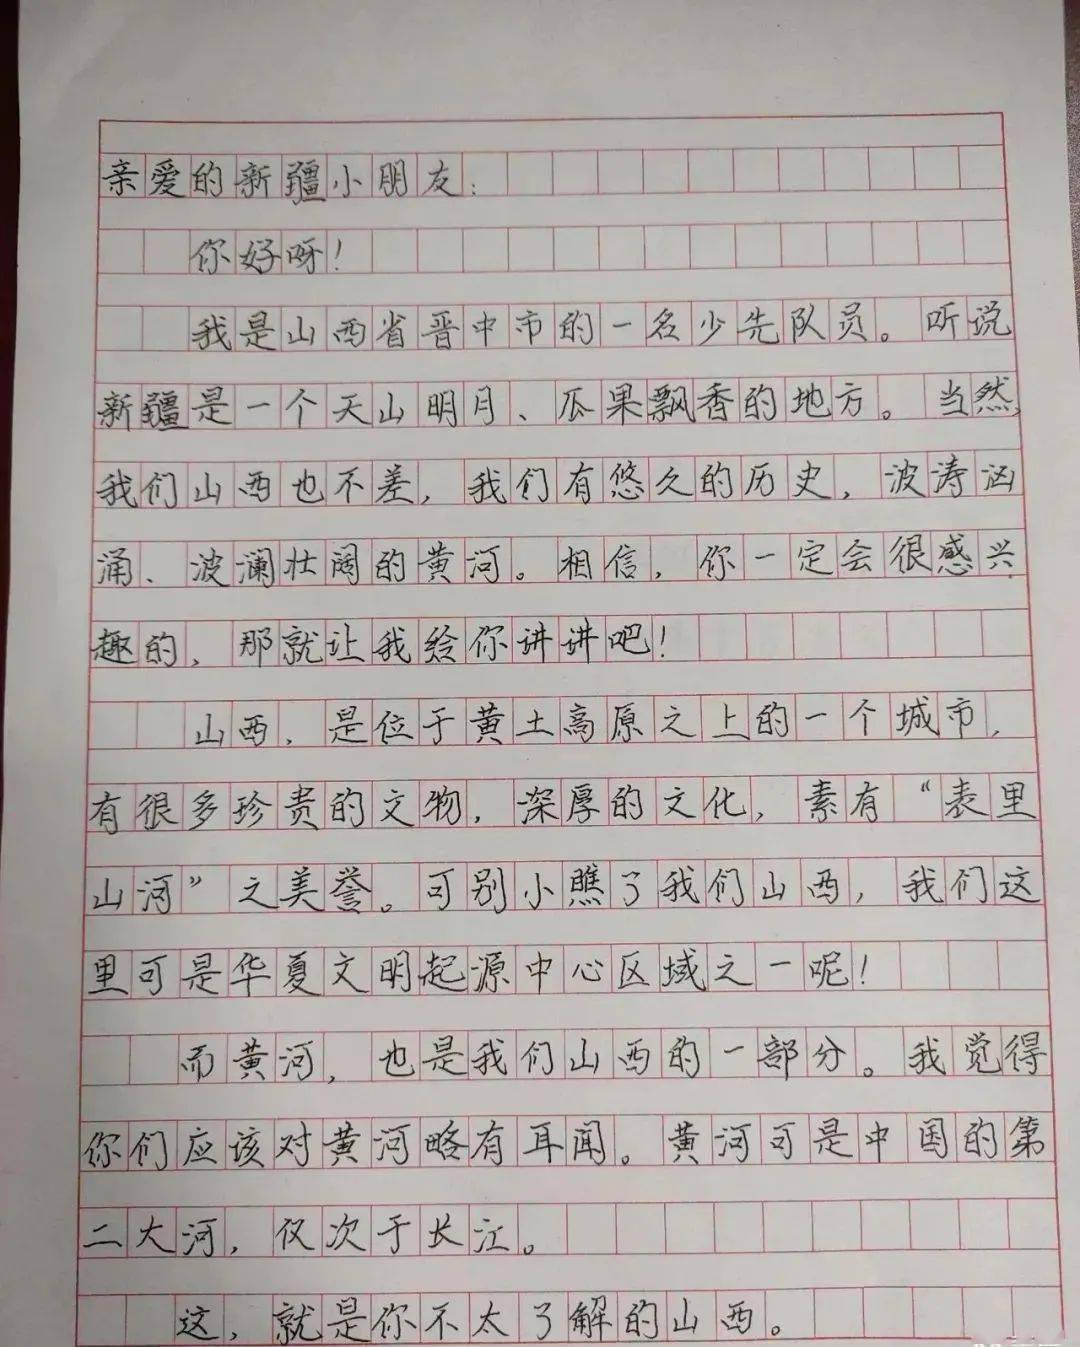 亲爱的新疆小朋友：
你好呀！
我是山西省晋中市的一名少先队员。听说
新疆是一个天山明月、瓜果飘香的地方。当然，
我们山西也不差，我们有悠久的历史，波涛汹
涌、波澜壮阔的黄河。相信，你一定会很感兴
趣的，那就让我给你讲讲吧！
山西，是位于黄土高原之上的一个城市，
有很多珍贵的文物，深厚的文化，素有“表里
山河”之美誉。可别小瞧了我们山西，我们这
里可是华夏文明起源中心区域之一呢！
而黄河，也是我们山西的一部分。我觉得
你们应该对黄河略有耳闻。黄河可是中国的第
二大河，仅次于长江。
这，就是你不太了解的山西。